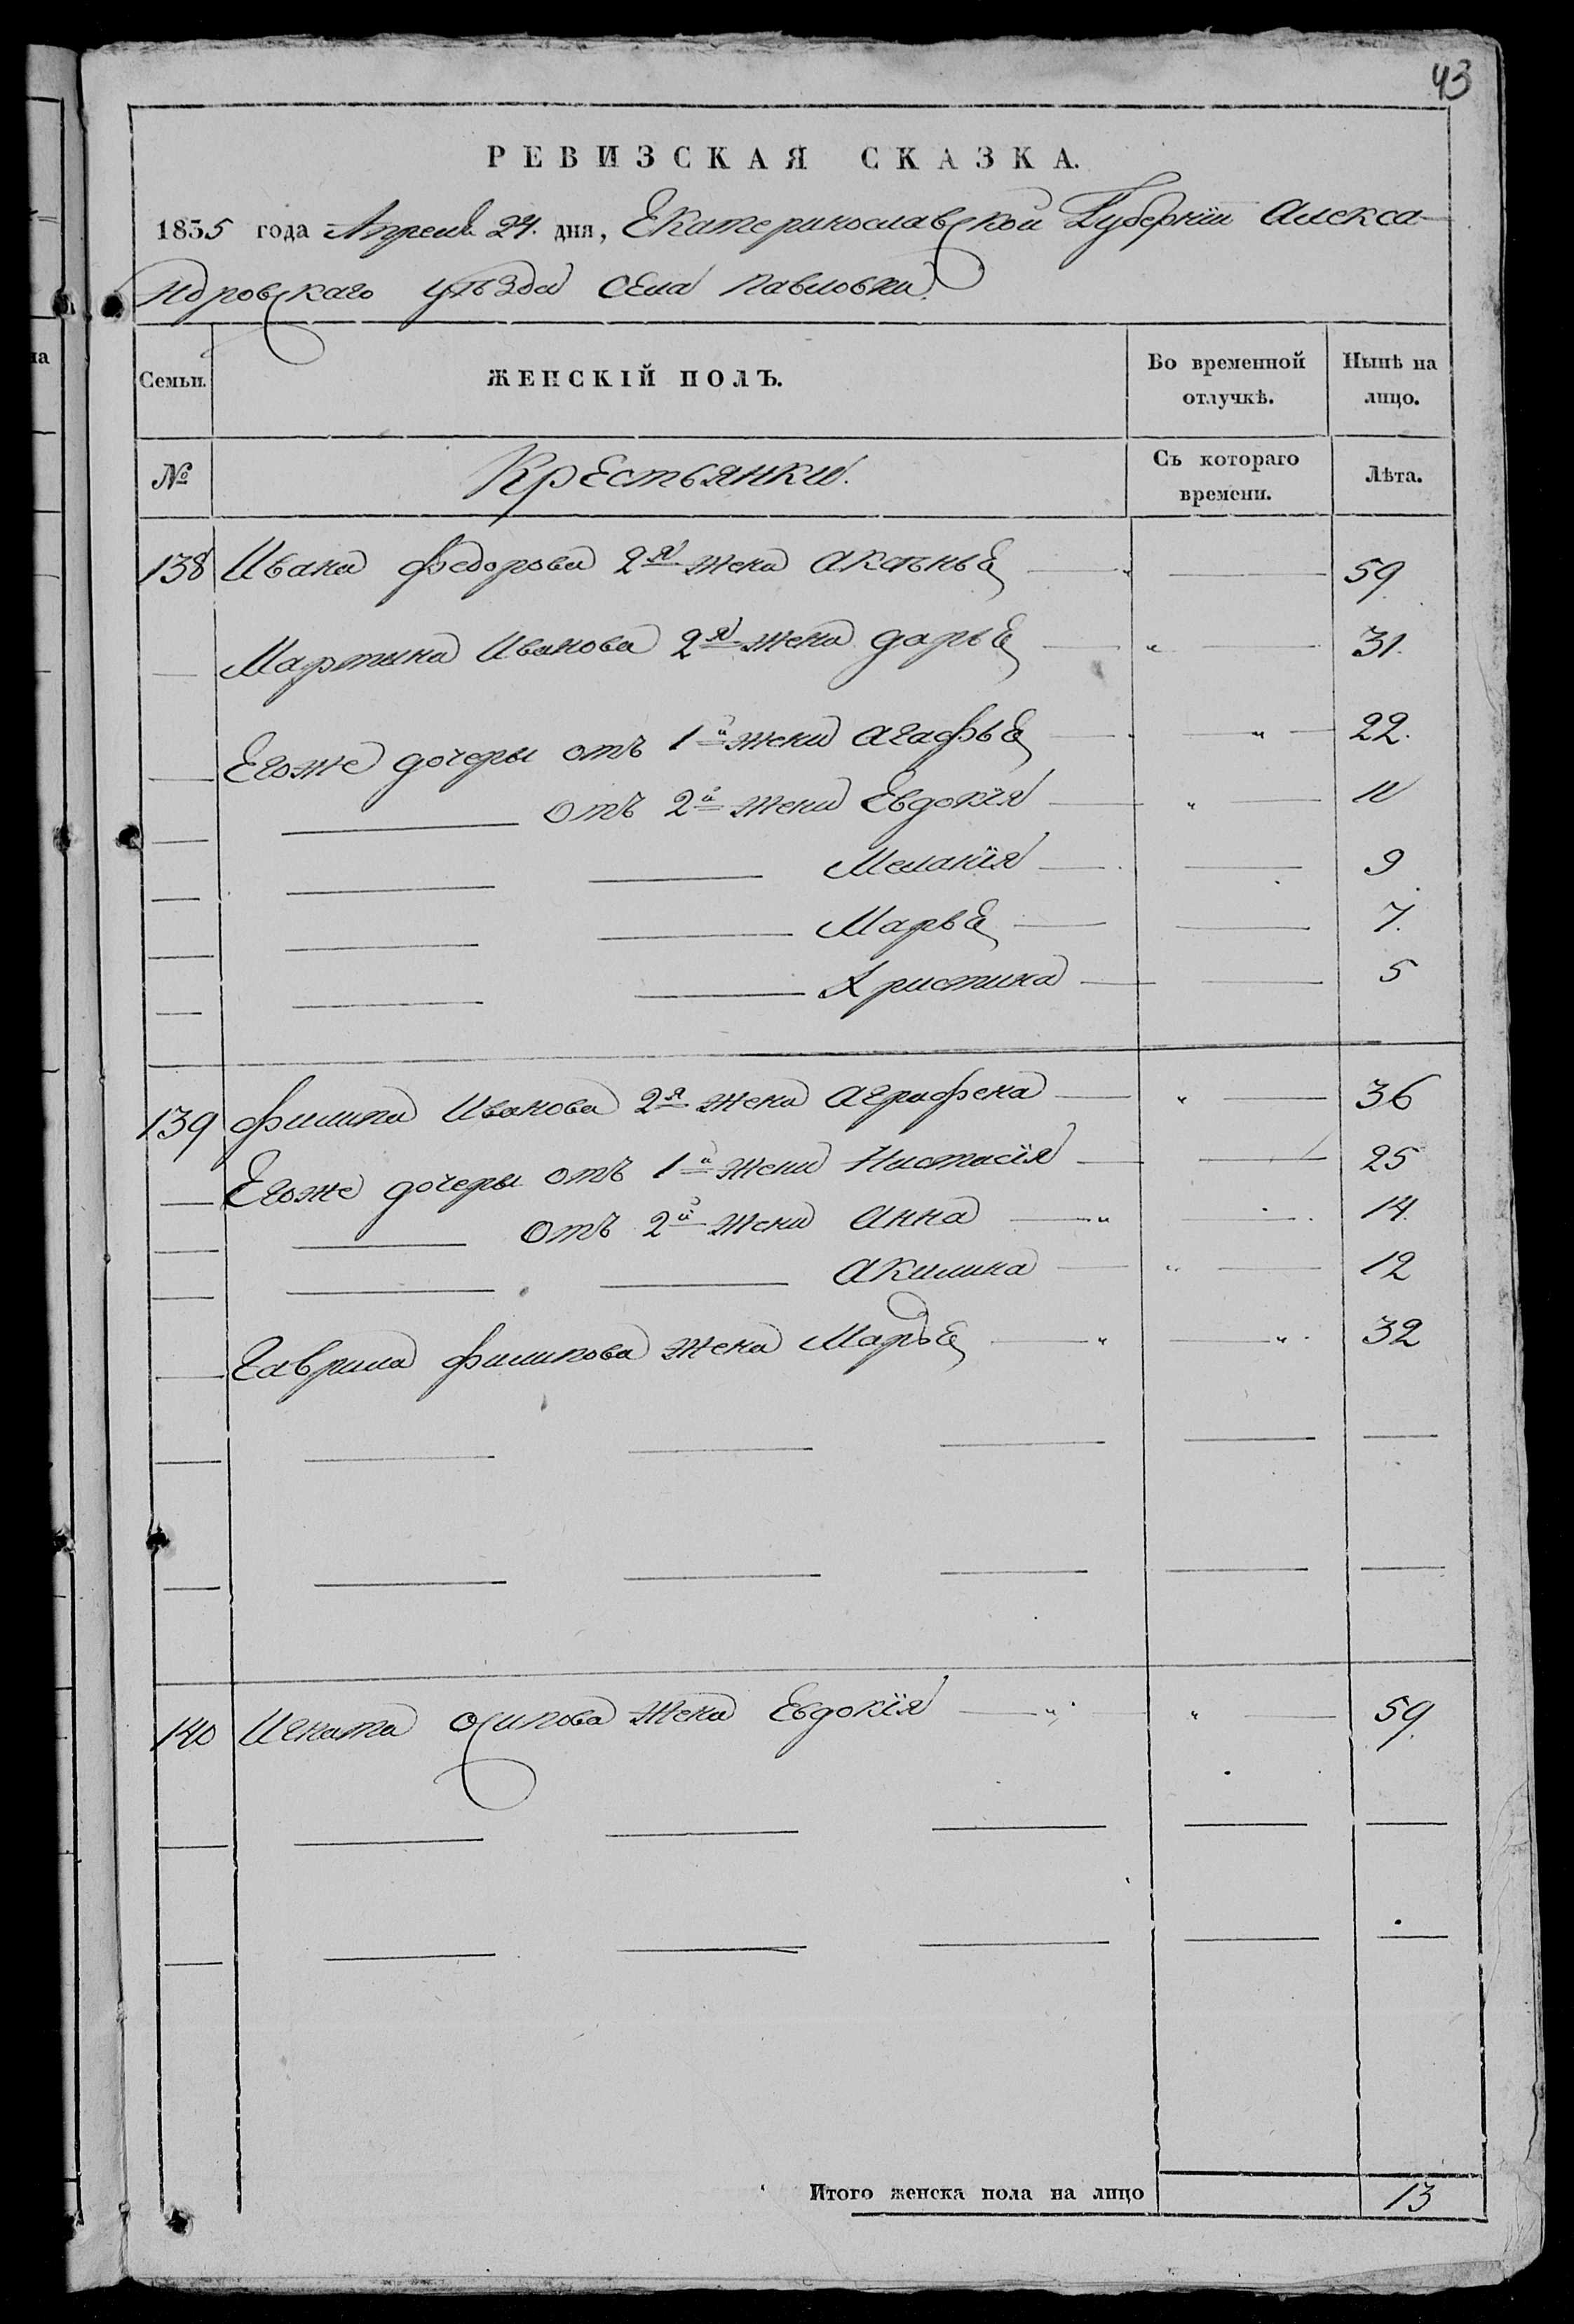 43
РЕВИЗСКАЯ СКАЗКА.
1835 года Апреля 24. дня, Екатеринославской Губернїи Алекса-
ндровскаго уѣзда села Павловки.
Семьи. ЖЕНСКІЙ ПОЛЪ. Во временной отлучкѣ. Нынѣ на лицо.
№ Крестьянки. Съ котораго времени. Лѣта.
138 Ивана Федорова 2я жена Акенья — " — 59.
— Мартина Иванова 2я жена Дарья — " — 31.
— Егоже дочеры отъ 1й жены Агафья — " — 22.
— — отъ 2й жены Евдокїя — " — 11
— — — Меланїя — — 9
— — — Марья — — 7.
— — — Христина — — 5
139 Филипа Иванова 2я жена Агрифена — " — 36
— Егоже дочеры отъ 1й жены Настасїя — — 25
— — отъ 2й жены Анна — " — 14.
— — — Акилина — " — 12
— Гаврила Филипова жена Марья — " — " 32
— — — — — —
— — — — — —
140 Игната Осипова жена Евдокїя — " — " — 59.
— — — — — —
— — — — — —
Итого женска пола на лицо 13